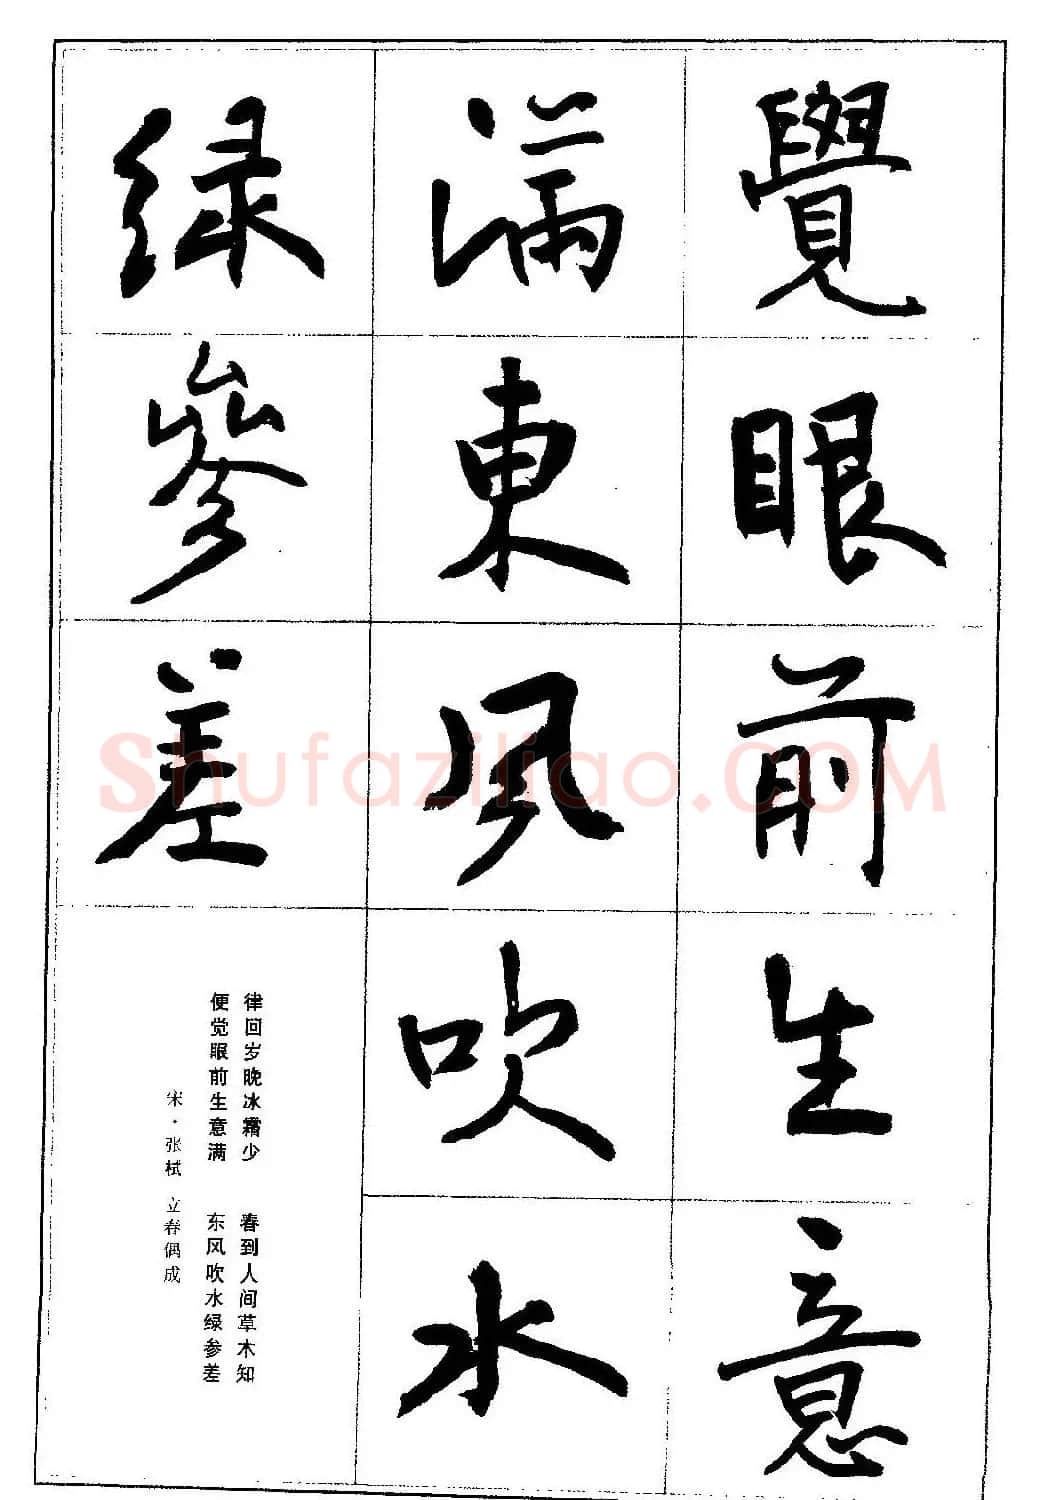 覺眼前生意
滿東風吹水
緑參差
律回岁晚冰霜少 春到人间草木知
便觉眼前生意满 东风吹水绿参差
宋·张栻 立春偶成
Shufaziliao.COM